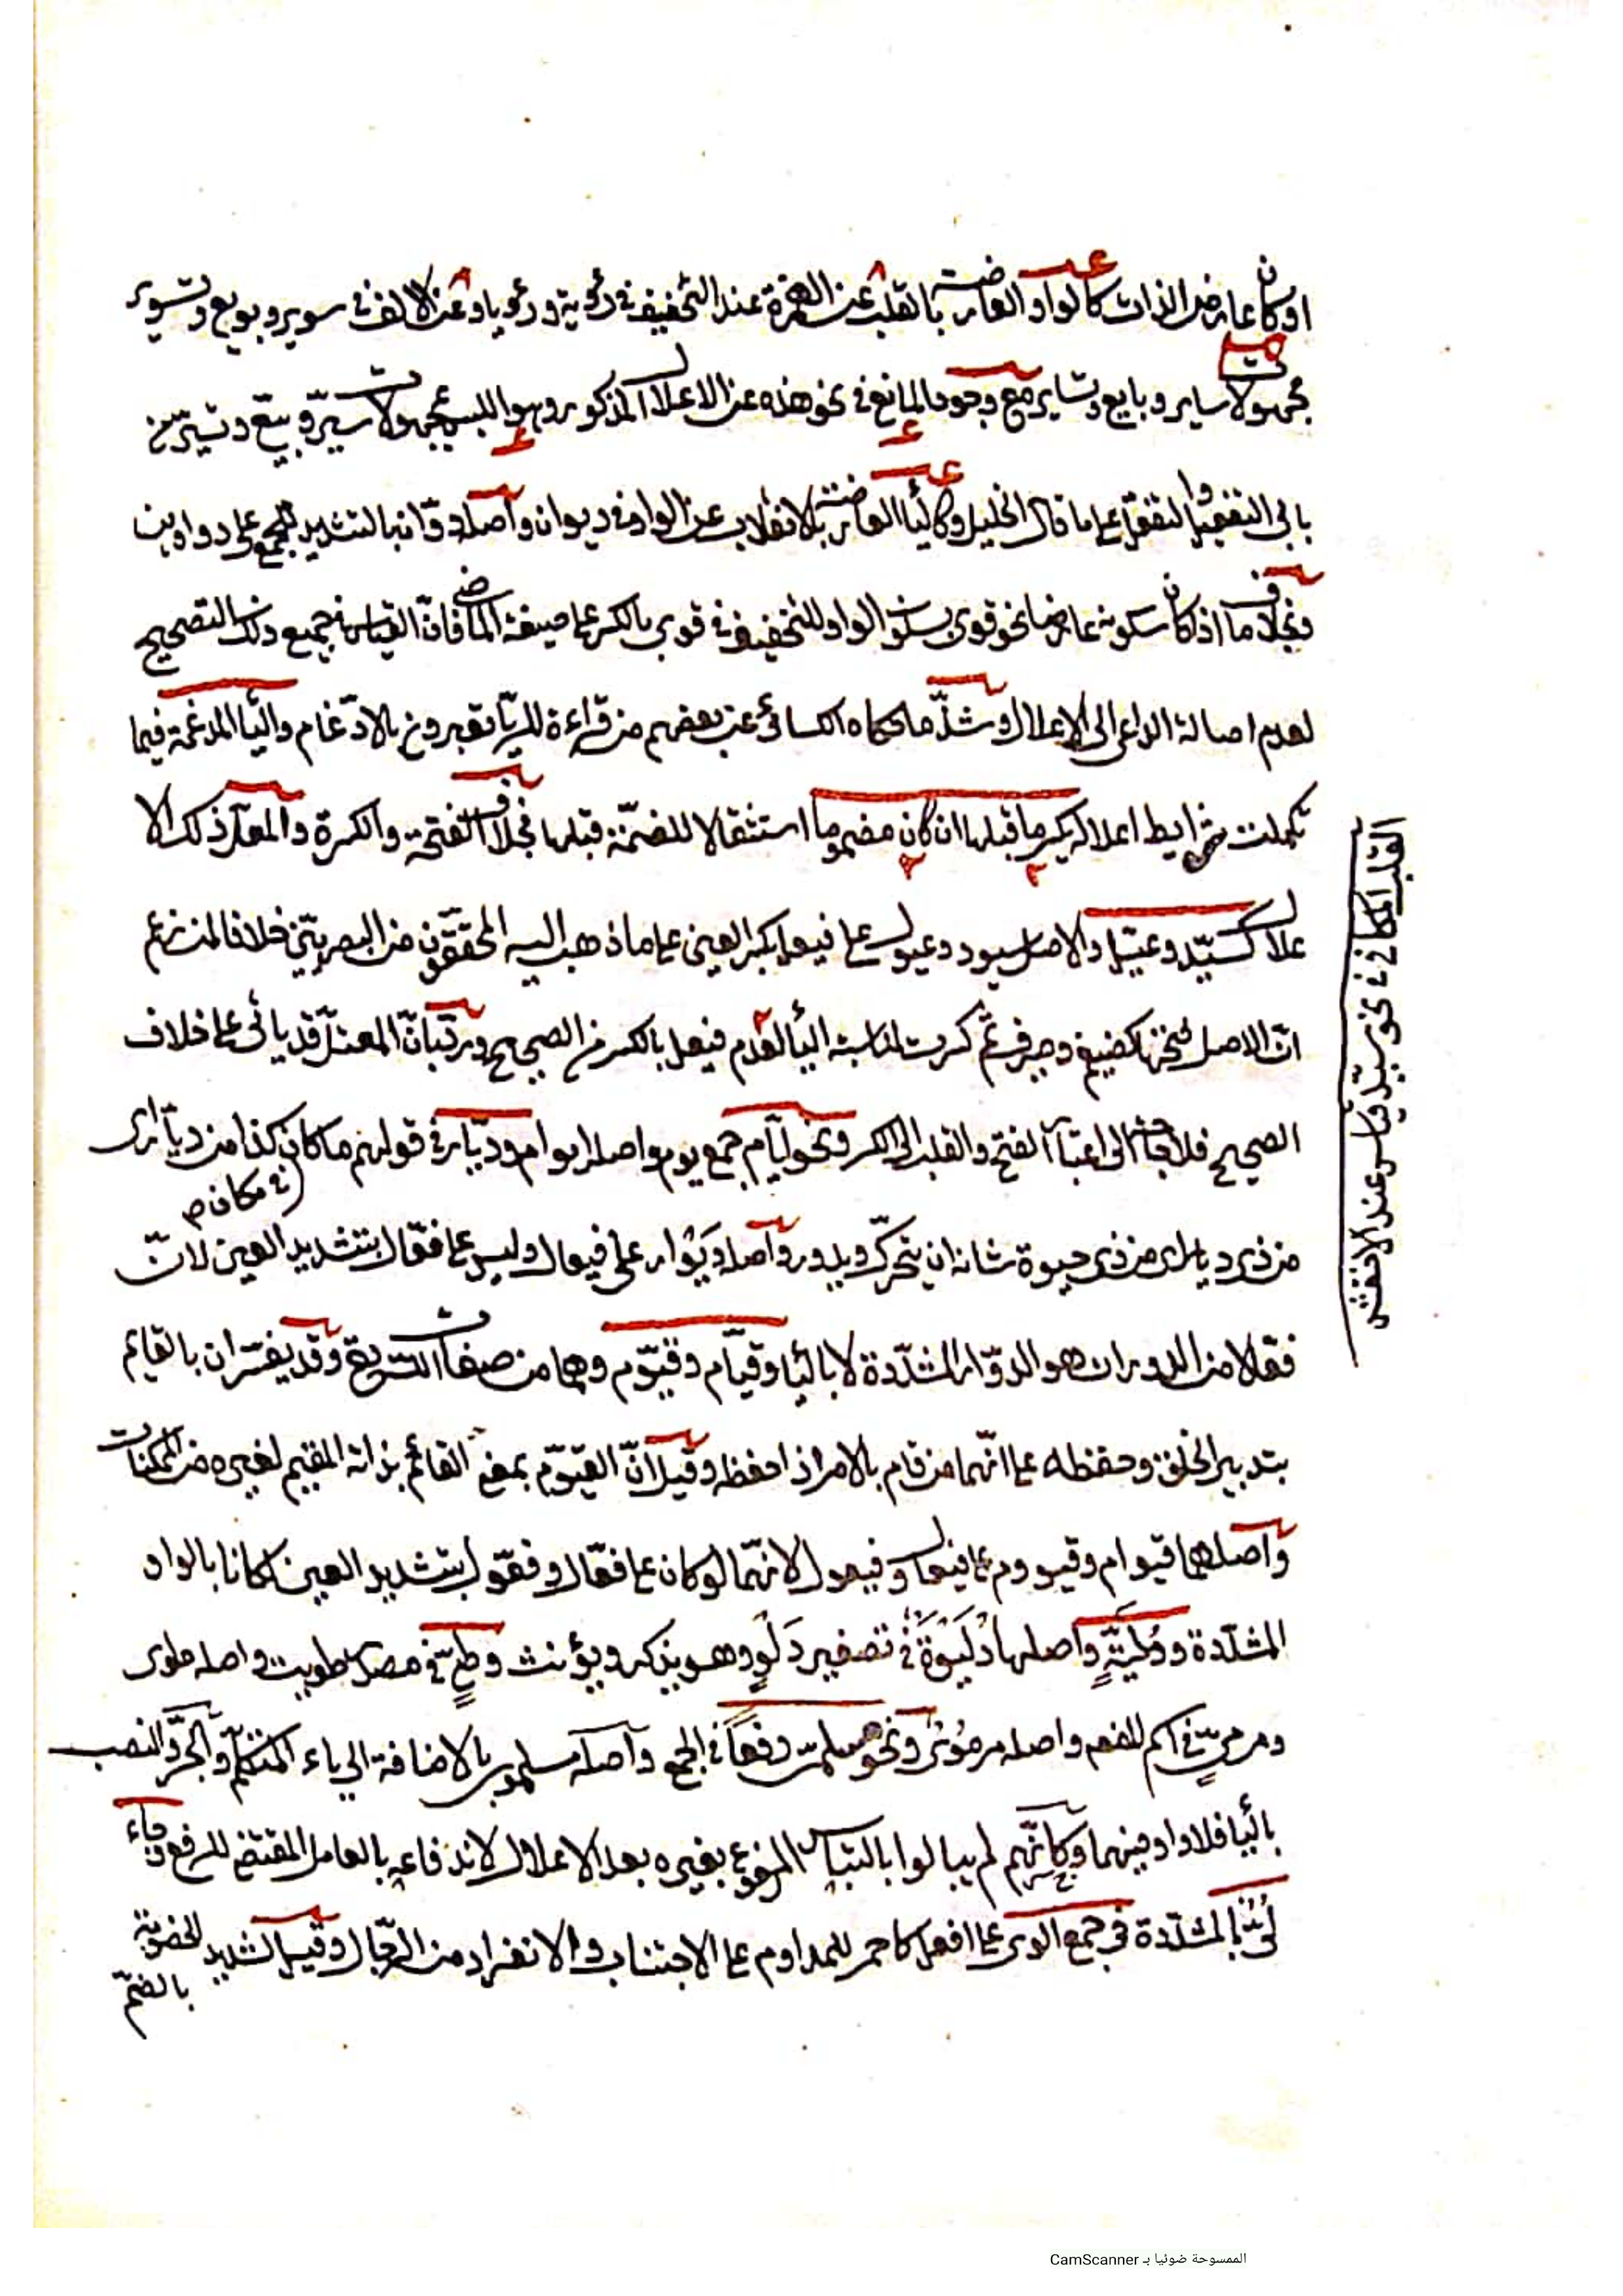 او كان عارض الذات كالواو العارضة بالقلب عن الهمزة عند التخفيف في رؤية ورؤيا وعن الالف في سوير وبويع وتسوير
مجهولات ساير وبايع وتساير مع وجود المانع في نحو هذه عن الاعلال المذكور وهو اللبس بمجهولات سيّر وبيّع وتسيّر من
بابي التفعيل والتفعّل على ما قال الخليل وكالياء العارضة بالانقلاب عن الواو في ديوان وأصله دوّان بالتشديد للجمع على دواوين
وبخلاف ما اذا كان سكونه عارضا نحو قوى بسكون الواو للتخفيف في قوى بالكسر على صيغة الماضي فانّ القياس في جميع ذلك التصحيح
لعدم اصالة الداعي الى الاعلال وشذّ ما حكاه الكسائي عن بعضهم من قراءة للريّا تعبرون بالادّغام والياء المدغمة فيما
تكملت شرايط اعلاله يكسر ما قبلها ان كان مضموما استثقالا للضمّة قبلها بخلاف الفتحة والكسرة والمعلّ ذلك الا
علال كسيّد وعيّل والاصل سيود وعيول على فيعل بكسر العين على ما ذهب اليه المحققون من البصريّين خلافا لمن زعم
انّ الاصل فتحها كضيغم وصيرف ثمّ كسرت لمناسبة الياء لعدم فيعل بالكسر في الصحيح وردّ بانّ المعتلّ قد ياتي على خلاف
الصحيح فلا حاجة الى اعتبار الفتح والقلب الى الكسر ونحو ايّام جمع يوم واصله ايوام وديّار في قولهم ما كان كذا من ديّار اى
في مكان ص
من ذى ديار اى من ذى حيوة شانه ان يتحرّك ويدور وأصله ديوار على فيعال وليس على فعّال بتشديد العين لانّ
فعّالا من الدوران هو الدوّار المشدّدة لا بالياء وقيّام وقيّوم وهما من صفات الشريعة وقد يفسّران بالقايم
بتدبير الخلق وحفظه على انّهما من قام بالامر اذا حفظه وقيل انّ القيّوم بمعنى القائم بذاته المقيم لغيره من الممكنات
وأصلهما قيوام وقيووم على فيعال وفيعول لانّهما لو كان على فعّال وفعّول بتشديد العين لكانا بالواو
المشدّدة ودُليّةٍ وأصلها دُلَيْوَةٌ في تصغير دَلْوٍ وهو يذكر ويؤنث وطيٍّ في مصدر طويت واصله طوى
ومرميٍّ في اسم المفعول واصله مرمُوْىٌ ونحو مسلميّ رفعًا في الجمع وأصله مسلموى بالاضافة الى ياء المتكلّم وأمّا الجرّ والنصب
بالياء فلا واو فيهما وكانّهم لم يبالوا بالتباس المرفوع بغيره بعد الاعلال لاندفاعه بالعامل المقتضي للرفع وجاء
لُىٌّ بالمشدّدة في جمع الوى على افعل كاحمر للمداوم على الاجتناب والانفراد من الرجال وقيل لشديد الخصومة
بالضمّ
القلب المكاني في نحو سيّد قياس عند الاخفش
الممسوحة ضوئيا بـ CamScanner